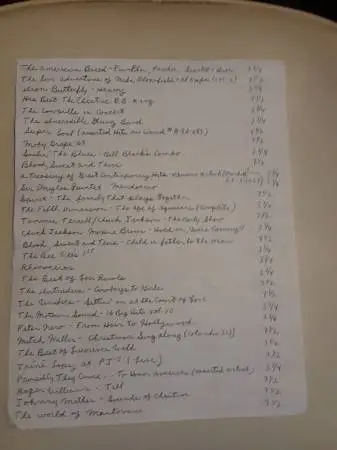 The American Breed - Pumpkin, Powder, Scarlet & Green 3 3/4
The Live Adventures of Mike Bloomfield & Al Kooper 7 1/2
Iron Butterfly - Heavy 3 3/4
Her Best The Electric B.B. King 7 1/2
The Cowsills in Concert 3 3/4
The Incredible String Band 3 3/4
Super Soul (assorted Hits 7 1/2
Moby Grape 69 7 1/2
Smokie, The Blues - Bill Black's Combo 3 3/4
Blood, Sweat and Tears 7 1/2
A Treasury of Great Contemporary Hits - Various Artists
Sir Douglas Quintet - Mendocino 3 3/4
Spirit - The Family That Plays Together 7 1/2
The Fifth Dimension - The Age of Aquarius (Complete) 3 3/4
Tammi Terrell / Chuck Jackson - The Early Show 7 1/2
Chuck Jackson Maxine Brown - Hold on, We're Coming 7 1/2
Blood, Sweat and Tears - Child is father to the man 7 1/2
The Bee Gees 1st 3 3/4
Rhinoceros 7 1/2
The Best of Lou Rawls 3 3/4
The Intruders - Cowboys to Girls 7 1/2
The Vontastics - Sittin' in at the Court of Love
The Motown Sound - 16 Big Hits Vol. 10 3 3/4
Peter Nero - From Hair to Hollywood 7 1/2
Mitch Miller - Christmas Sing Along (Columbia 7 1/2
The Best of Lawrence Welk 3 3/4
Trini Lopez at PJ's (Live) 3 3/4
Proudly They Came - To Honor America (assorted artists) 7 1/2
Roger Williams - Till 7 1/2
Johnny Miller - Sounds of 3 3/4
The World of Mantovani 7 1/2